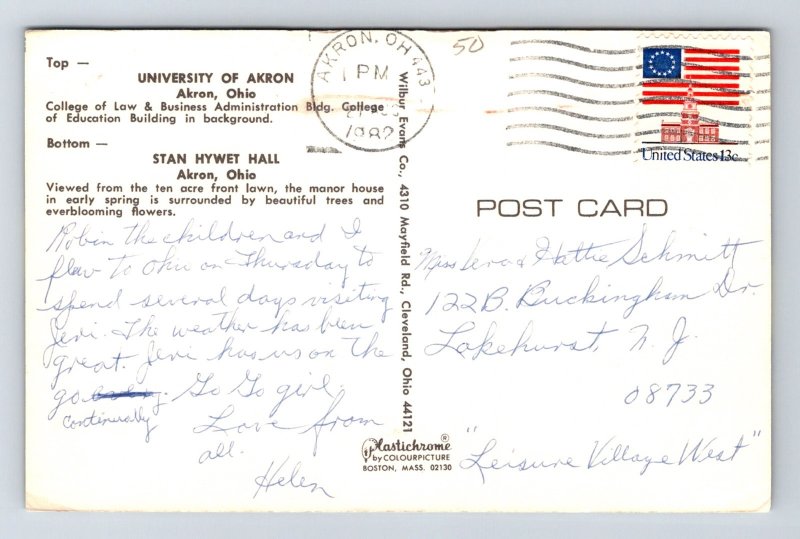 Top —
UNIVERSITY OF AKRON
Akron, Ohio
College of Law & Business Administration Bldg. College
of Education Building in background.
Bottom —
STAN HYWET HALL
Akron, Ohio
Viewed from the ten acre front lawn, the manor house
in early spring is surrounded by beautiful trees and
everblooming flowers.
Robin the children and I
flew to Ohio on Thursday to
spend several days visiting
Jeri. The weather has been
great. Jeri has us on the
go. Go Go girl.
continerally
Love from
all.
Helen
Wilbur Evans Co., 4310 Mayfield Rd., Cleveland, Ohio 44121
Plastichrome®
by COLOURPICTURE
BOSTON, MASS. 02130
AKRON, OH 443
1 PM
21
1982
50
United States 13c
POST CARD
Miss & Hattie Schmitt
122B. Buckingham Dr.
Lakehurst, N. J.
08733
"Leisure Village West"